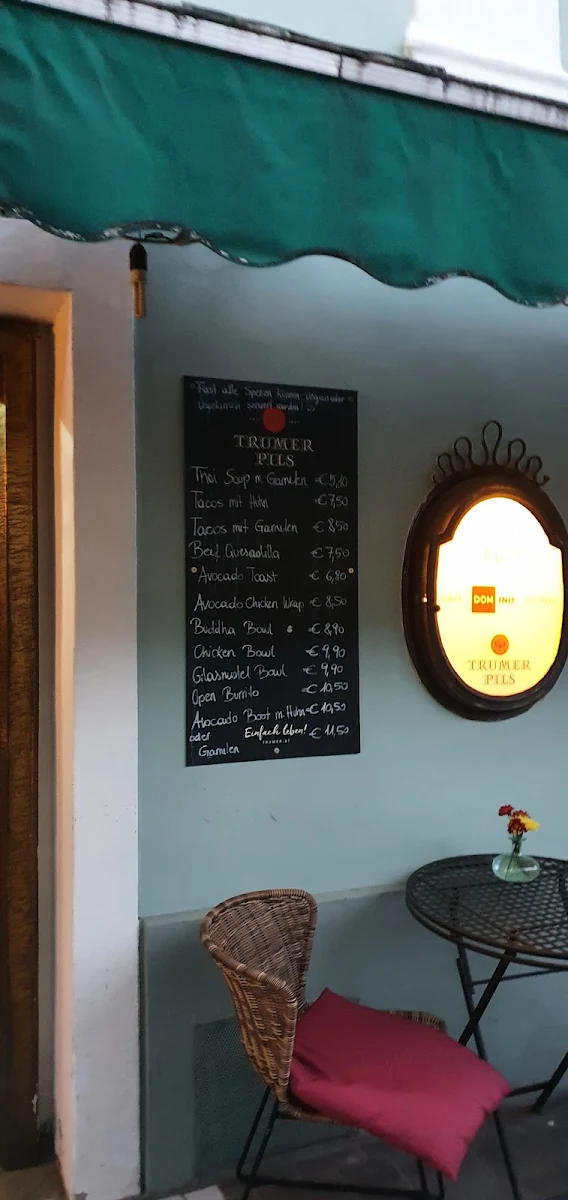 Fast alle Speisen können vegan oder
Vegetarisch serviert werden!
TRUMER
PILS
Thai Soup m Garnelen €5,10
Tacos mit Huhn €7,50
Tacos mit Garnelen €8,50
Beef Quesadilla €7,50
Avocado Toast €6,80
Avocado Chicken Wrap €8,50
Buddha Bowl €8,90
Chicken Bowl €9,90
Glasnudel Bowl €9,90
Open Burrito €10,50
Avocado Boot m. Huhn €10,50
oder Einfach leben! €11,50
TRUMER.AT
Garnelen
DOM INO
TRUMER
PILS